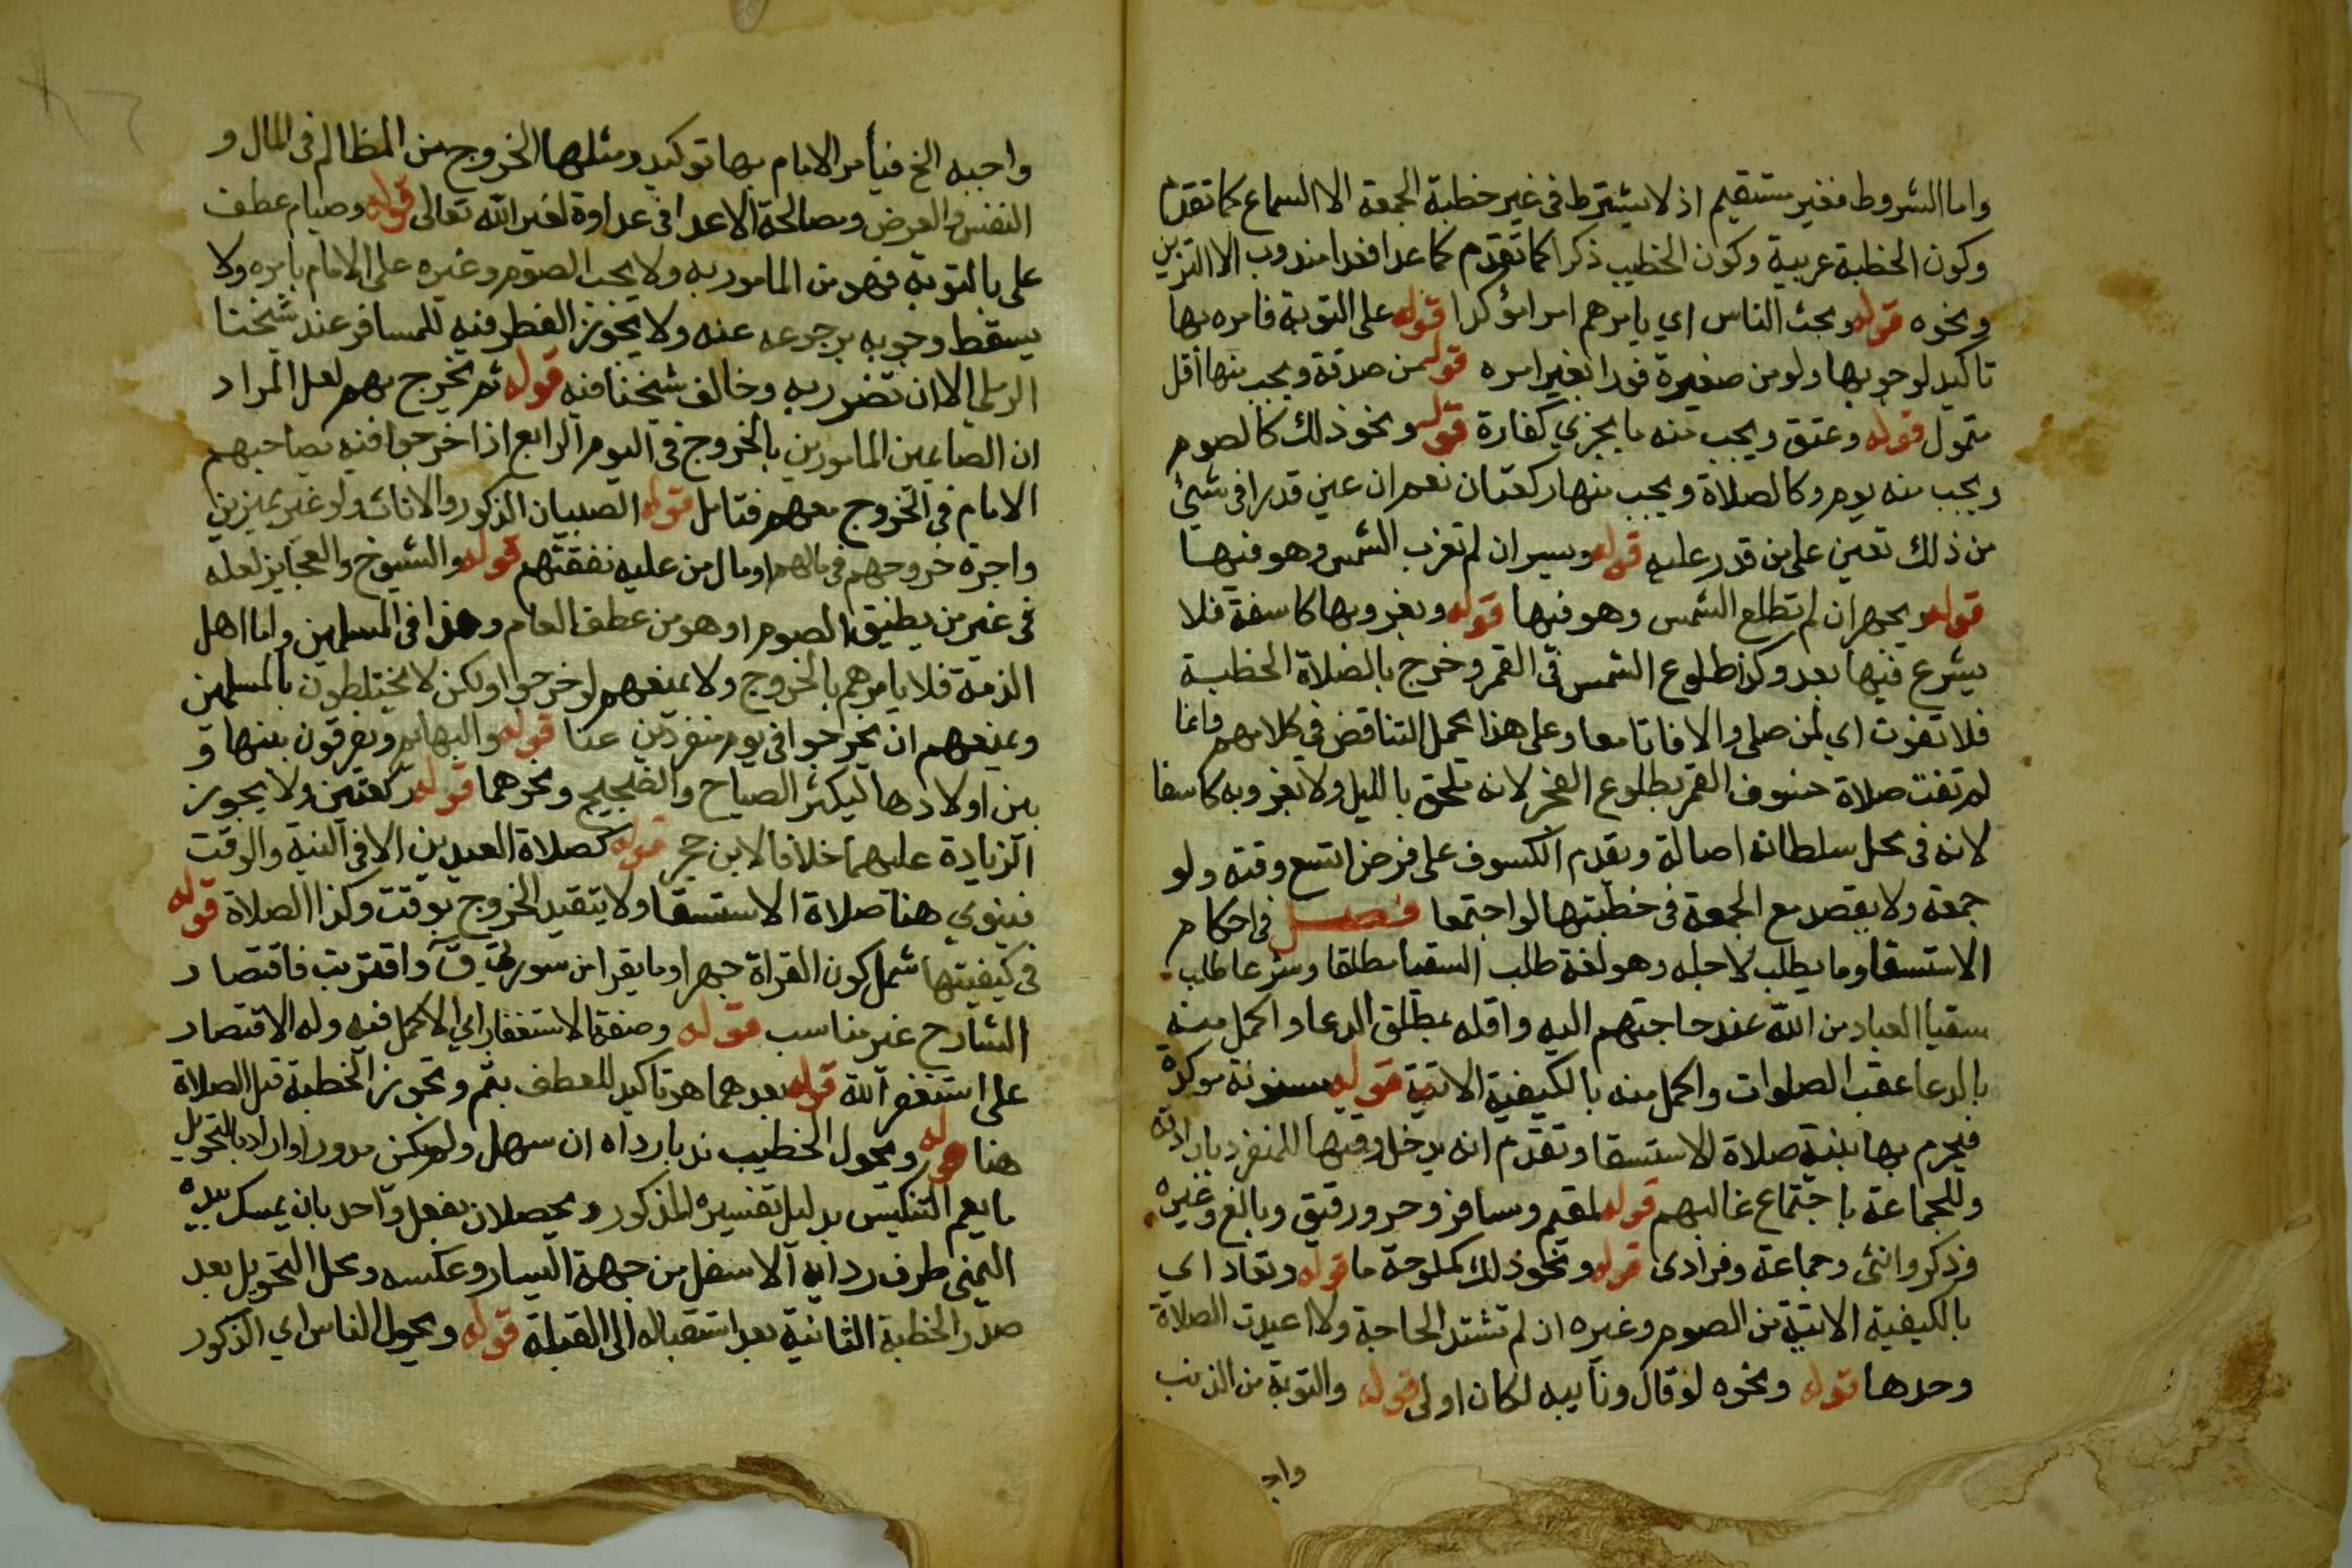 واما الشروط فغير مستقيم اذ لا يشترط في غير خطبة الجمعة الا السماع كما تقدم
وكون الخطبة عربية وكون الخطيب ذكرا كما تقدم فما عدا فغدا مندوب الا التزين
ونحوه قوله ويحث الناس اي يامرهم امرا مؤكدا قوله على التوبة فامره بها
تاكيد لوجوبها ولو من صغيرة فورا بغير امره قوله من صدقة ويجب منها اقل
متمول قوله وعتق ويجب منه ما يجزي كفارة قوله ونحو ذلك كالصوم
ويجب منه يوم وكالصلاة ويجب منها ركعتان نعم ان عين قدرا في شيئ
من ذلك تعين على من قدر عليه قوله ويسر ان لم تغرب الشمس وهو فيها
قوله ويجهر ان لم تطلع الشمس وهو فيها قوله وبغروبها كاسفة فلا
يشرع فيها بعد وكذا طلوع الشمس في القمر وخرج بالصلاة الخطبة
فلا تفوت اي لمن صلى والا فاتا معا وعلى هذا يحمل التناقض في كلامهم وانما
لم تفت صلاة خسوف القمر بطلوع الفجر لانه ملحق بالليل ولا بغروبه كاسفا
لانه في محل سلطانه اصالة ويقدم الكسوف على فرض اتسع وقته ولو
جمعة ولا يقصد مع الجمعة في خطبتها لو اجتمعا فصل في احكام
الاستسقا وما يطلب لاجله وهو لغة طلب السقيا مطلقا وشرعا طلب
سقيا العباد من الله عند حاجتهم اليه واقله بمطلق الدعا واكمل منه
بالدعا عقب الصلوات واكمل منه بالكيفية الاتية قوله مسنونة موكدة
فيحرم بها بنية صلاة الاستسقا وتقدم انه يدخل وقتها للمنفرد بارادته
وللجماعة باجتماع غالبهم قوله لمقيم ومسافر وحر ورقيق وبالغ وغيره
وذكر وانثى وجماعة وفرادى قوله ونحو ذلك كملوحة ما قوله وتعاد اي
بالكيفية الاتية من الصوم وغيره ان لم تشتد الحاجة والا اعيدت الصلاة
وحدها قوله ونحوه لو قال ونايبه لكان اولى قوله والتوبة من الذنب
واجـ
واجبه الخ فيأمر الامام بها توكيد ومثلها الخروج من المظالم في المال و
النفس والعرض ومصالحة الاعدا في عداوة لغير الله تعالى قوله وصيام عطف
على بالتوبة فهو من المامور به ولا يجب الصوم وغيره على الامام بامره ولا
يسقط وجوبه برجوعه عنه ولا يجوز الفطر فيه للمسافر عند شيخنا
الرملي الا ان تضرر به وخالف شيخنا فيه قوله ثم يخرج بهم لعل المراد
ان الصايمين المامورين بالخروج في اليوم الرابع اذا خرجوا فيه يصاحبهم
الامام في الخروج معهم فتامل قوله الصبيان الذكور والاناث ولو غير مميزين
واجرة خروجهم في مالهم او مال من عليه نفقتهم قوله والشيوخ والعجايز لعله
في غير من يطيق الصوم او هو من عطف العام وهذا في المسلمين واما اهل
الذمة فلا يامرهم بالخروج ولا يمنعهم لو خرجوا ولكن لا يختلطون بالمسلمين
ويمنعهم ان يخرجوا في يوم منفردين عنا قوله والبهايم ويفرقون بينها و
بين اولادها ليكثر الصياح والضجيج ونحوهما قوله ركعتين ولا يجوز
الزيادة عليهما خلافا لابن حجر قوله كصلاة العيدين الا في النية والوقت
فينوي هنا صلاة الاستسقا ولا يتقيد الخروج بوقت وكذا الصلاة قوله
في كيفيتها شمل كون القراة جهرا وما يقرا من سورتي ق واقتربت فاقتصار
الشارح غير مناسب قوله وصفة الاستغفار اي الاكمل فيه وله الاقتصار
على استغفر الله قوله بعدهما هو تاكيد للعطف بثم وتجوز الخطبة قبل الصلاة
هنا قوله ويحول الخطيب ندبا رداه ان سهل ولم يكن مدورا واراد بالتحويل
ما يعم التنكيس بدليل تفسيره المذكور ويحصلان بفعل واحد بان يمسك بيده
اليمنى طرف ردايه الاسفل من جهة اليسار وعكسه ومحل التحويل بعد
صدر الخطبة الثانية بعد استقباله الى القبلة قوله ويحول الناس اي الذكور